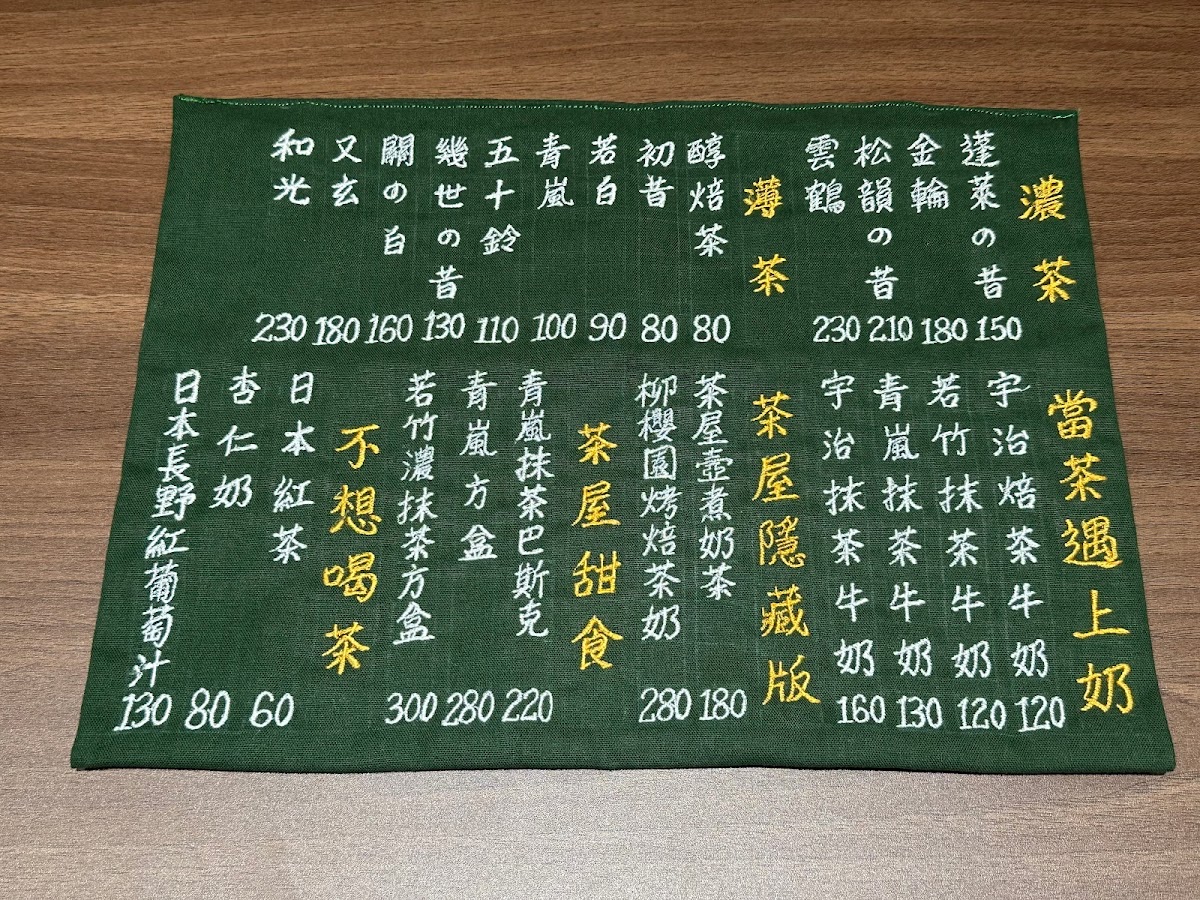 濃茶
蓬萊の昔
150
金輪
180
松韻の昔
210
雲鶴
230
薄茶
醇焙茶
80
初昔
80
若白
90
青嵐
100
五十鈴
110
幾世の昔
130
關の白
160
又玄
180
和光
230
當茶遇上奶
宇治焙茶牛奶
120
若竹抹茶牛奶
120
青嵐抹茶牛奶
130
宇治抹茶牛奶
160
茶屋隱藏版
茶屋壺煮奶茶
180
柳櫻園烤焙茶奶
280
茶屋甜食
青嵐抹茶巴斯克
220
青嵐方盒
280
若竹濃抹茶方盒
300
不想喝茶
日本紅茶
60
杏仁奶
80
日本長野紅葡萄汁
130